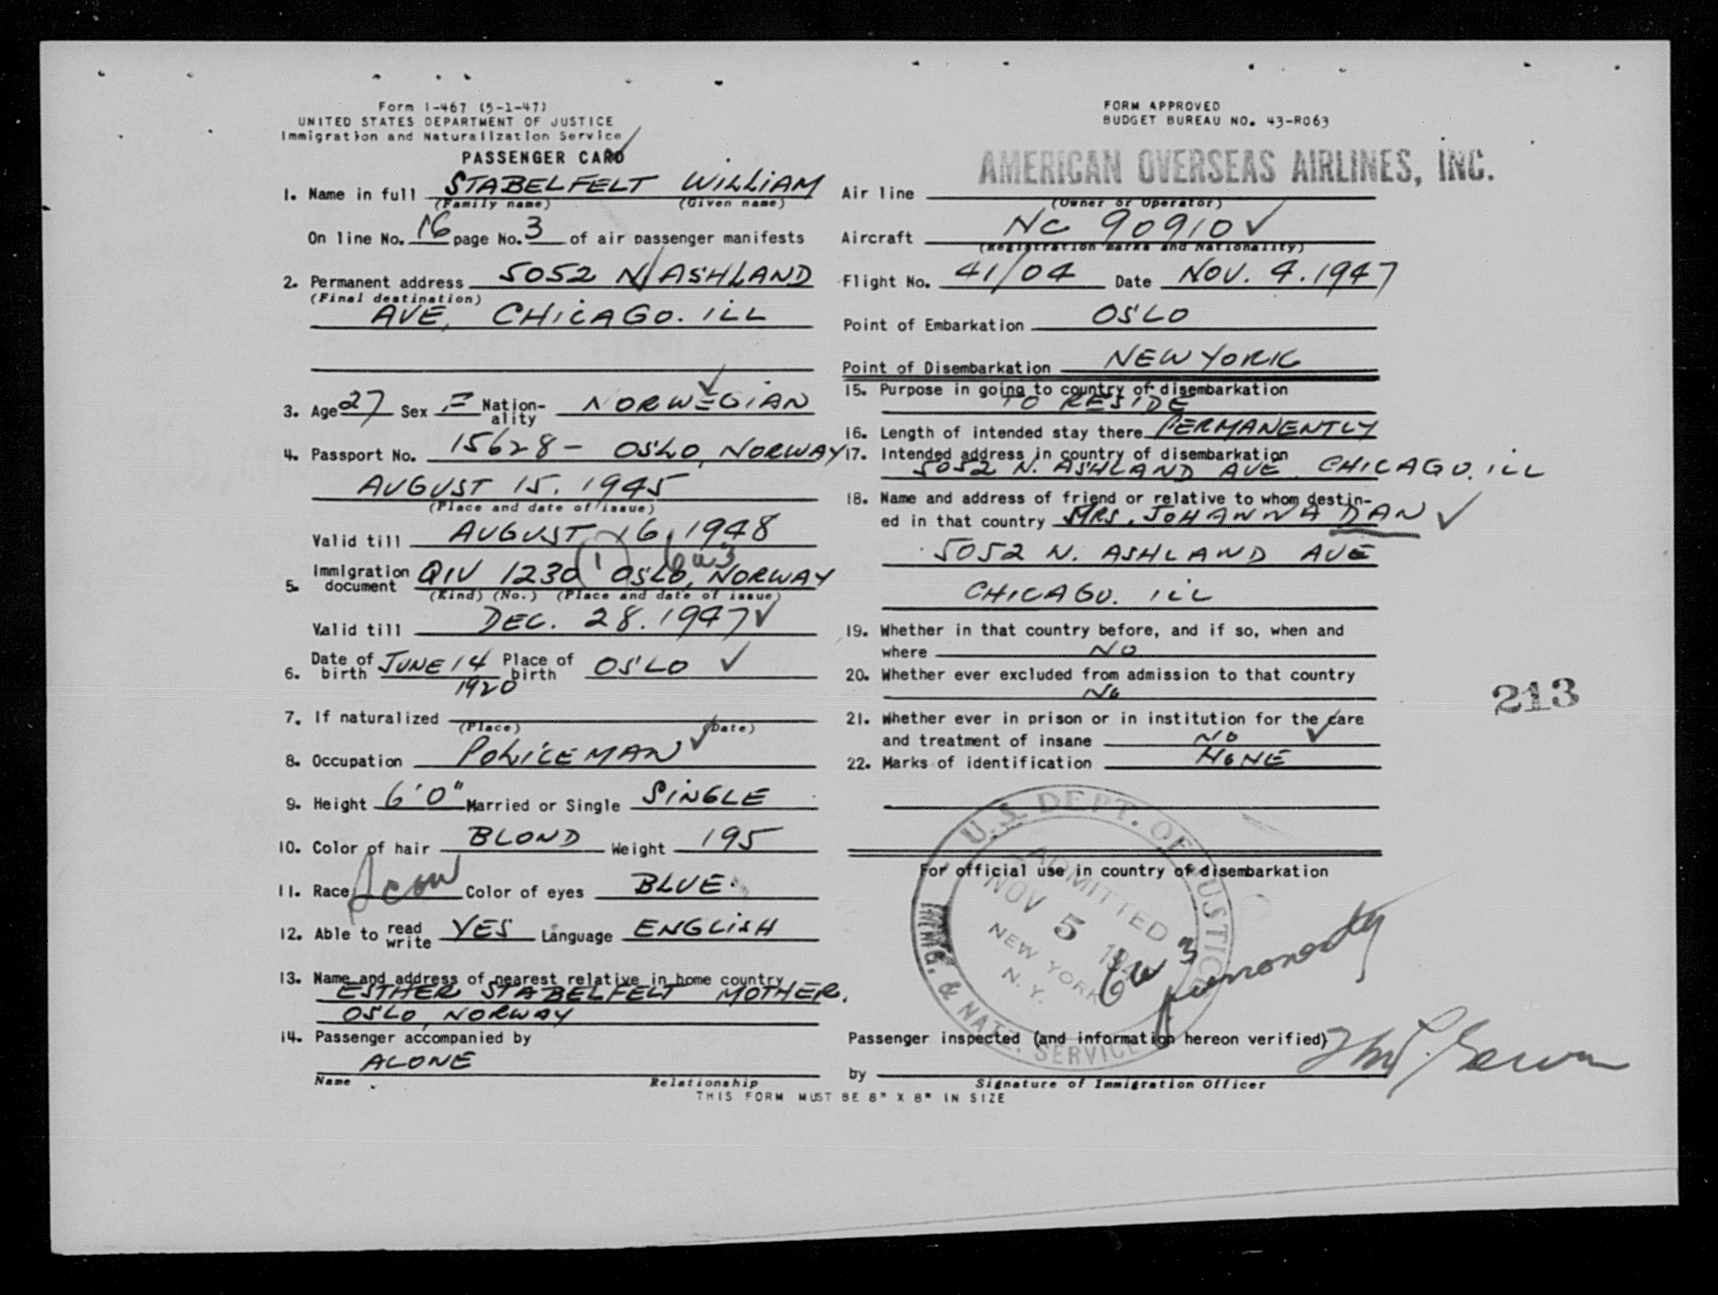 Form I-467 (5-1-47)
UNITED STATES DEPARTMENT OF JUSTICE
Immigration and Naturalization Service
PASSENGER CARD
1. Name in full STABELFELT WILLIAM
(Family name) (Given name)
On line No. 16 page No. 3 of air passenger manifests
2. Permanent address 5052 N ASHLAND
(Final destination)
AVE, CHICAGO. ILL
3. Age 27 Sex F Nation-ality NORWEGIAN
4. Passport No. 15628 - OSLO, NORWAY
AUGUST 15. 1945
(Place and date of issue)
Valid till AUGUST 16, 1948
5. Immigration document QIV 1230 (1) OSLO, NORWAY 6a3
(Kind) (No.) (Place and date of issue)
Valid till DEC. 28. 1947
6. Date of birth JUNE 14 1920 Place of birth OSLO
7. If naturalized
(Place) (Date)
8. Occupation POLICEMAN
9. Height 6'0" Married or Single SINGLE
10. Color of hair BLOND Weight 195
11. Race Scan Color of eyes BLUE.
12. Able to read write YES Language ENGLISH
13. Name and address of nearest relative in home country
ESTHER STABELFELT MOTHER.
OSLO, NORWAY
14. Passenger accompanied by
ALONE
Name Relationship
THIS FORM MUST BE 8" X 8" IN SIZE
FORM APPROVED
BUDGET BUREAU NO. 43-R063
AMERICAN OVERSEAS AIRLINES, INC.
Air line
(Owner or Operator)
Aircraft NC 90910
(Registration marks and Nationality)
Flight No. 41/04 Date NOV. 4. 1947
Point of Embarkation OSLO
Point of Disembarkation NEW YORK
15. Purpose in going to country of disembarkation
TO RESIDE
16. Length of intended stay there PERMANENTLY
17. Intended address in country of disembarkation
5052 N. ASHLAND AVE CHICAGO. ILL
18. Name and address of friend or relative to whom destin-
ed in that country MRS. JOHANNA DAN
5052 N. ASHLAND AVE
CHICAGO. ILL
19. Whether in that country before, and if so, when and
where NO
20. Whether ever excluded from admission to that country
NO
21. Whether ever in prison or in institution for the care
and treatment of insane NO
22. Marks of identification NONE
213
For official use in country of disembarkation
U.S. DEPT. OF JUSTICE
ADMITTED
NOV 5 194
NEW YORK
N.Y.
IMMIG. & NATZ. SERVICE
Passenger inspected (and information hereon verified)
by
Signature of Immigration Officer